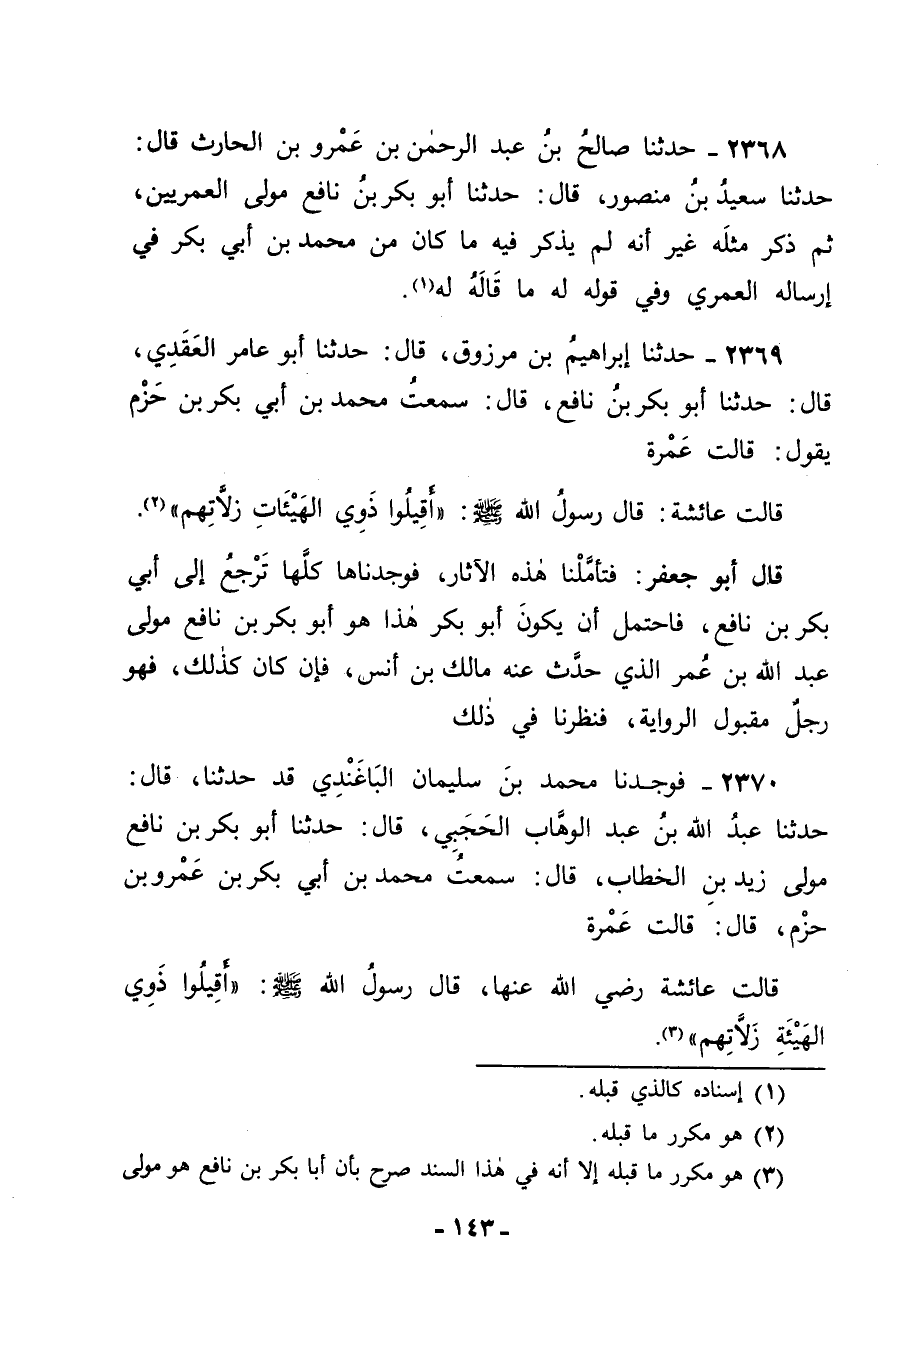 ٢٣٦٨ ـ حدثنا صالحُ بنُ عبد الرحمٰن بن عَمْرو بن الحارث قال:
حدثنا سعيدُ بنُ منصور، قال: حدثنا أبو بكر بنُ نافع مولى العمريين،
ثم ذكر مثلَه غير أنه لم يذكر فيه ما كان من محمد بن أبي بكر في
إرساله العمري وفي قوله له ما قَالَهُ له(١).
٢٣٦٩ ـ حدثنا إبراهيمُ بن مرزوق، قال: حدثنا أبو عامر العَقَدِي،
قال: حدثنا أبو بكر بنُ نافع، قال: سمعتُ محمد بن أبي بكر بن حَزْم
يقول: قالت عَمْرة
قالت عائشة: قال رسولُ الله ﷺ: «أَقِيلُوا ذَوِي الهَيْئَاتِ زلاَّتِهم»(٢).
قال أبو جعفر: فتأمَّلْنا هٰذه الآثار، فوجدناها كلَّها تَرْجعُ إلى أبي
بكر بن نافع، فاحتمل أن يكونَ أبو بكر هٰذا هو أبو بكر بن نافع مولى
عبد الله بن عُمر الذي حدَّث عنه مالك بن أنس، فإن كان كذٰلك، فهو
رجلٌ مقبول الرواية، فنظرنا في ذٰلك
٢٣٧٠ ـ فوجدنا محمد بنَ سليمان البَاغَنْدِي قد حدثنا، قال:
حدثنا عبدُ الله بنُ عبد الوهَّاب الحَجَبِي، قال: حدثنا أبو بكر بن نافع
مولى زيد بنِ الخطاب، قال: سمعتُ محمد بن أبي بكر بن عَمْرو بن
حزْم، قال: قالت عَمْرة
قالت عائشة رضي الله عنها، قال رسولُ الله ﷺ: «أَقِيلُوا ذَوِي
الهَيْئَةِ زَلاَّتِهم»(٣).
(١) إسناده كالذي قبله.
(٢) هو مكرر ما قبله.
(٣) هو مكرر ما قبله إلا أنه في هٰذا السند صرح بأن أبا بكر بن نافع هو مولى
ـ ١٤٣ ـ